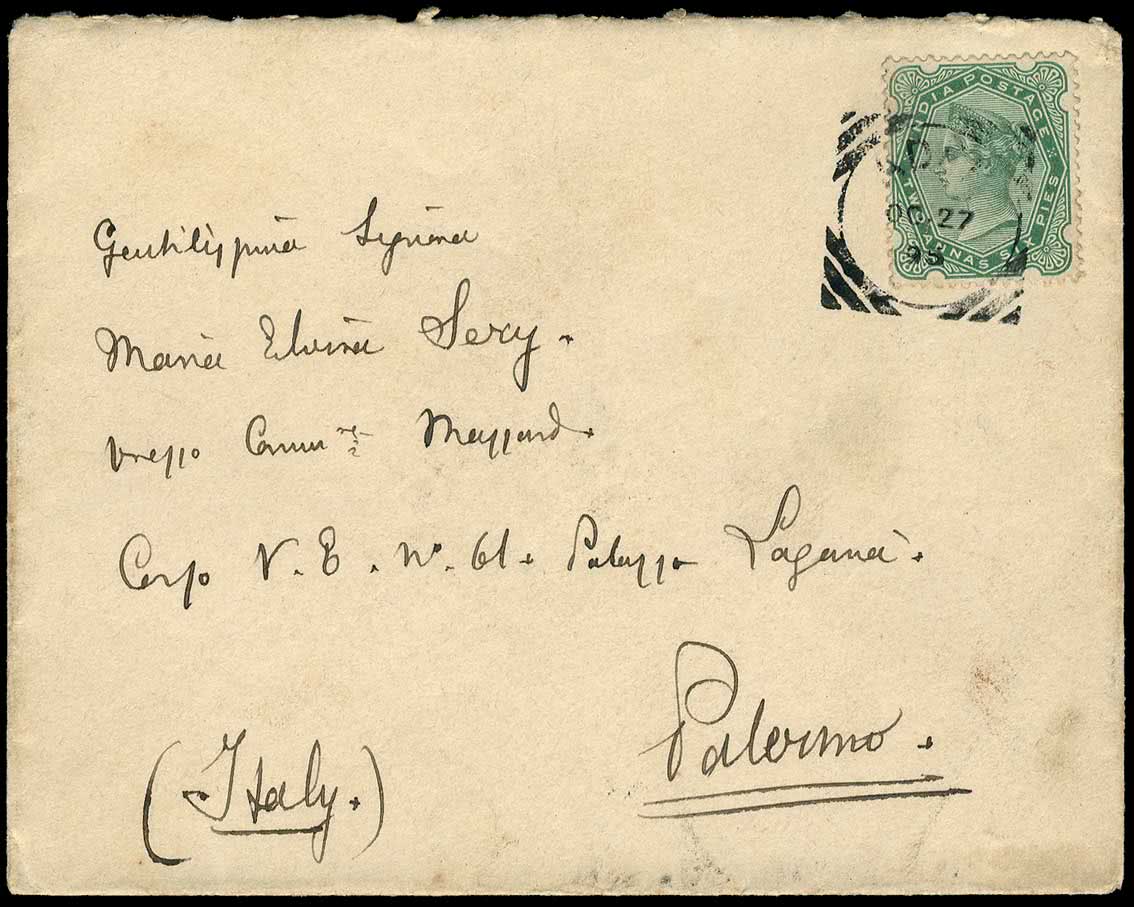 INDIA POSTAGE
TWO ANNAS SIX PIES
OC 27
95
Gentilissima Signora
Maria Elvira Sery.
presso Comm.re
Corso V. E. No. 61. Palazzo Laganà.
Palermo.
(Italy.)